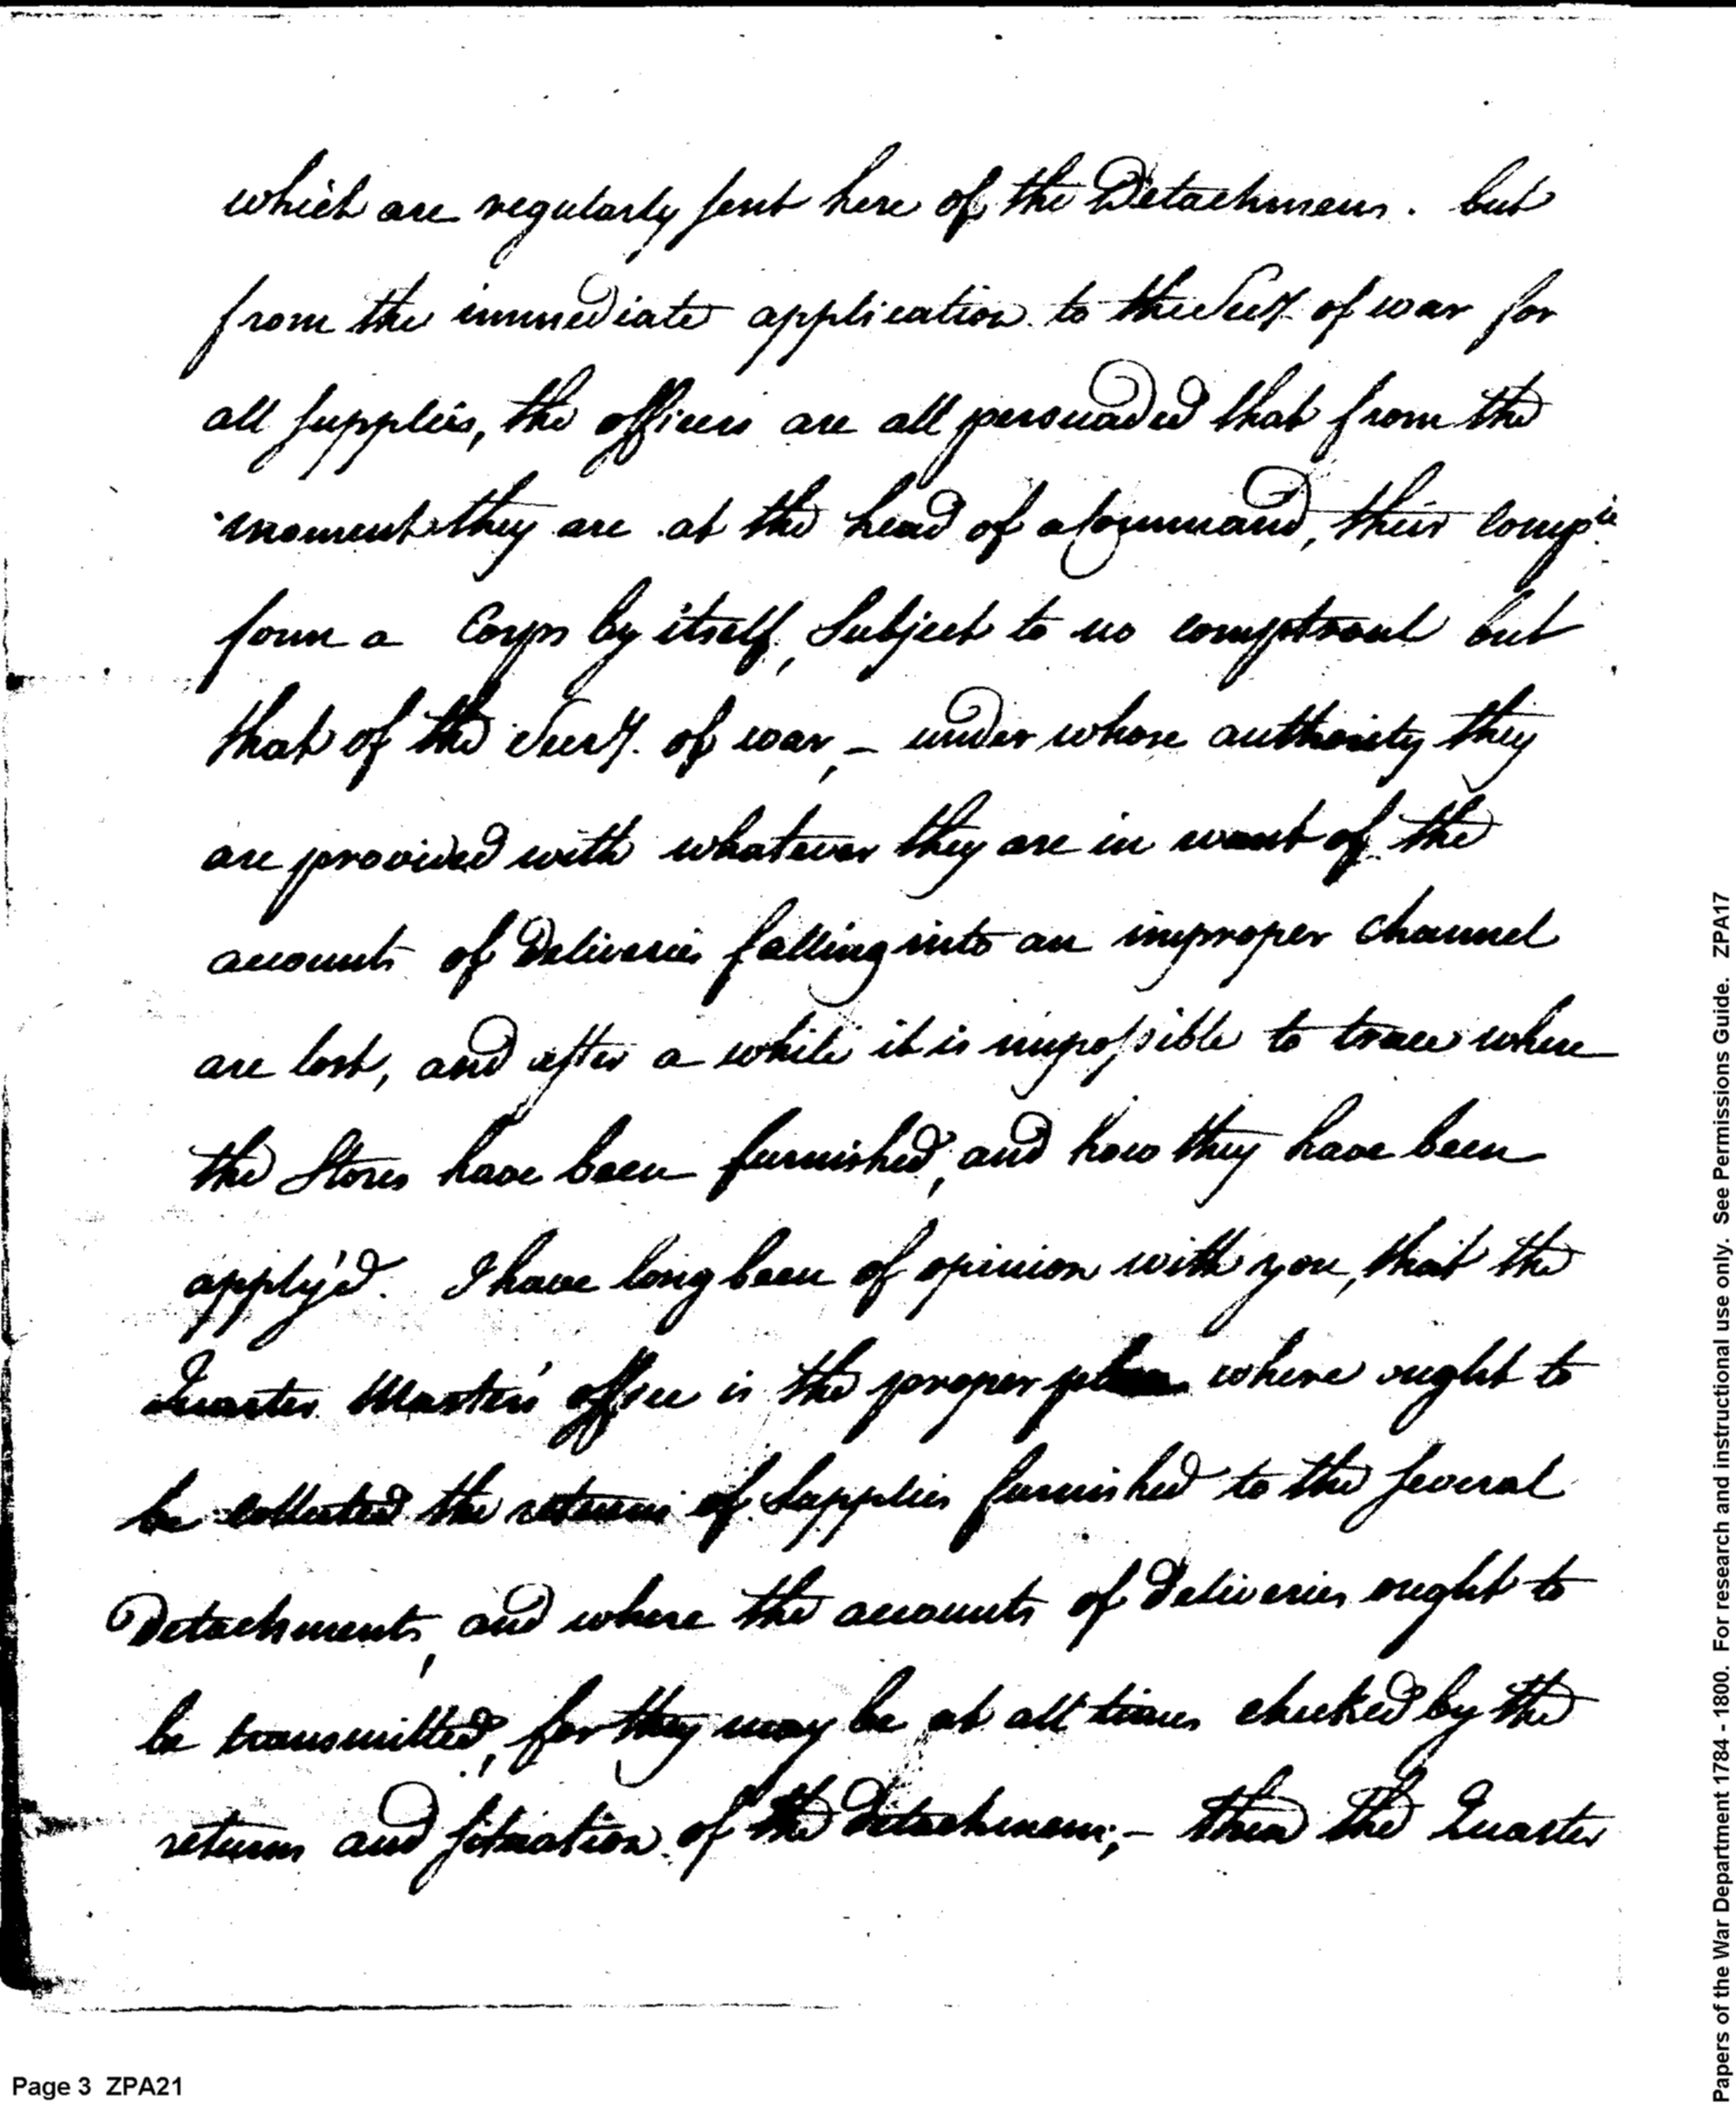 which are regularly sent here of the Detachmens. but
from the immediate application to the Secy. of war for
all supplies, the officers are all persuaded that from the
moment they are at the head of a Command, their Compie
form a Corps by itself, Subject to no comptroul but
that of the Secry. of war, – under whose authority they
are provided with whatever they are in want of. the
accounts of Deliveries falling into an improper channel
are lost, and after a while it is impossible to trace where
the Stores have been furnished, and how they have been
apply'd. I have long been of opinion with you, that the
Quarter Master's office is the proper place where ought to
be collected the returns of Supplies furnished to the several
Detachments, and where the accounts of Deliveries ought to
be transmitted, for they may be at all times checked by the
returns and situation of the Detachmens; – then the Quarter
Page 3 ZPA21
Papers of the War Department 1784 - 1800. For research and instructional use only. See Permissions Guide. ZPA17